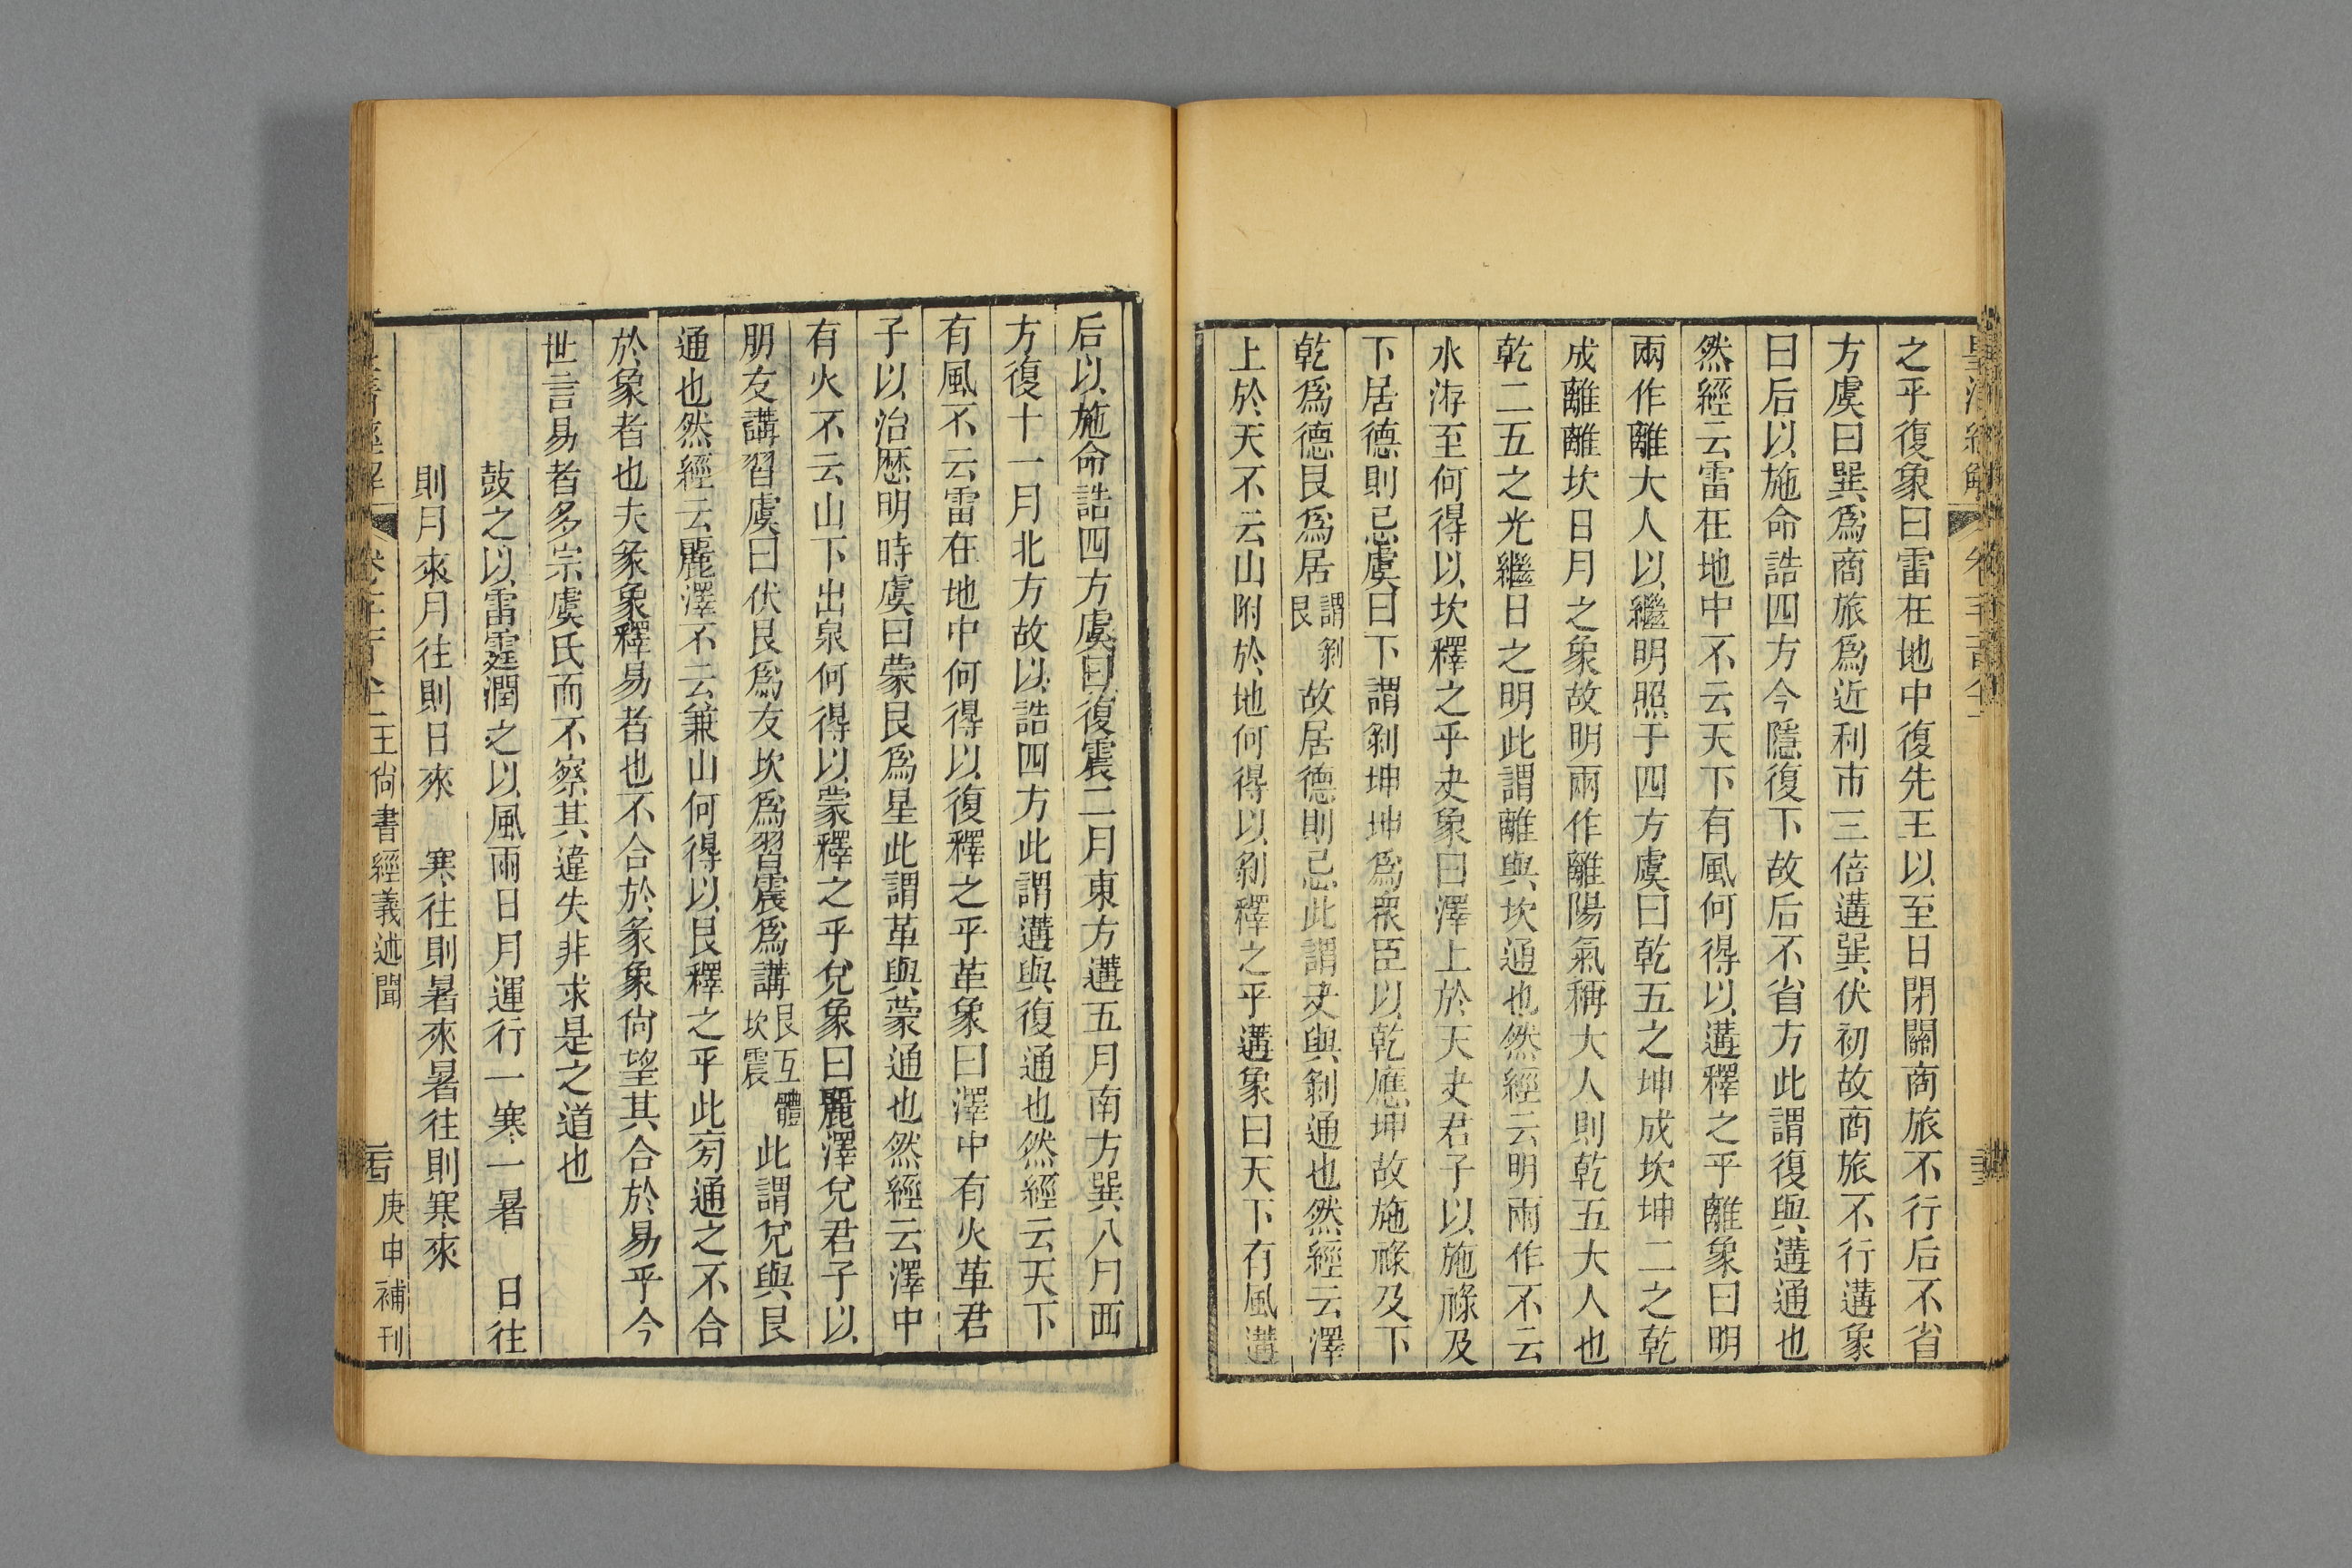 皇清經解
之乎復象曰雷在地中復先王以至日閉關商旅不行后不省
方虞曰巽爲商旅爲近利市三倍遘巽伏初故商旅不行遘象
曰后以施命誥四方今隱復下故后不省方此謂復與遘通也
然經云雷在地中不云天下有風何得以遘釋之乎離象曰明
兩作離大人以繼明照于四方虞曰乾五之坤成坎坤二之乾
成離離坎日月之象故明兩作離陽氣稱大人則乾五大人也
乾二五之光繼日之明此謂離與坎通也然經云明兩作不云
水洊至何得以坎釋之乎夬象曰澤上於天夬君子以施祿及
下居德則忌虞曰下謂剝坤坤爲衆臣以乾應坤故施祿及下
乾爲德艮爲居謂剝艮故居德則忌此謂夬與剝通也然經云澤
上於天不云山附於地何得以剝釋之乎遘象曰天下有風遘
后以施命誥四方虞曰復震二月東方遘五月南方巽八月西
方復十一月北方故以誥四方此謂遘與復通也然經云天下
有風不云雷在地中何得以復釋之乎革象曰澤中有火革君
子以治厤明時虞曰蒙艮爲星此謂革與蒙通也然經云澤中
有火不云山下出泉何得以蒙釋之乎兌象曰麗澤兌君子以
朋友講習虞曰伏艮爲友坎爲習震爲講艮互體坎震此謂兌與艮
通也然經云麗澤不云兼山何得以艮釋之乎此㫄通之不合
於象者也夫彖象釋易者也不合於彖象尙望其合於易乎今
世言易者多宗虞氏而不察其違失非求是之道也
鼓之以雷霆潤之以風雨日月運行一寒一暑 日往
則月來月往則日來 寒往則暑來暑往則寒來
皇清經解 王尙書經義述聞 庚申補刊